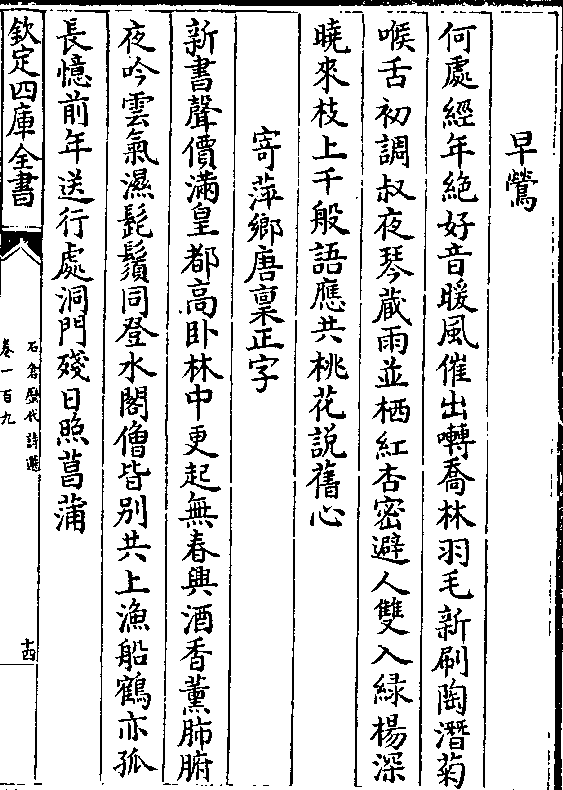 早鶯
何處經年絶好音暖風催出囀喬林羽毛新刷陶潛菊
喉舌初調叔夜琴蔵雨並栖紅杏密避人雙入緑楊深
曉來枝上千般語應共桃花説舊心
寄萍鄉唐稟正字
新書聲價滿皇都高卧林中更起無春興酒香薰肺腑
夜吟雲氣濕髭鬚同登水閣僧皆别共上漁船鶴亦孤
長憶前年送行處洞門殘日照菖蒲
欽定四庫全書
石倉歴代詩選
卷一百九
十四